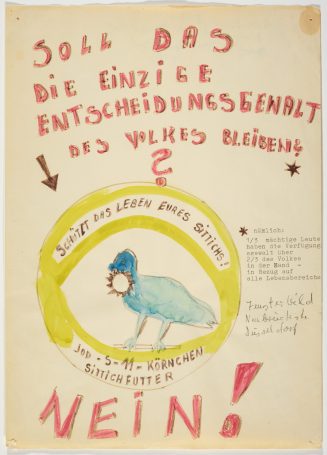 SOLL DAS
DIE EINZIGE
ENTSCHEIDUNGSGEWALT
DES VOLKES BLEIBEN?
?
SCHÜTZT DAS LEBEN EURES SITTICHS!
* nämlich:
1/3 mächtige Leute
haben die Verfügungs
gewalt über
2/3 des Volkes
in der Hand -
in Bezug auf
alle Lebensbereiche
Fensterbild
Düsseldorf
JOD - S - 11 - KÖRNCHEN
SITTICHFUTTER
NEIN!